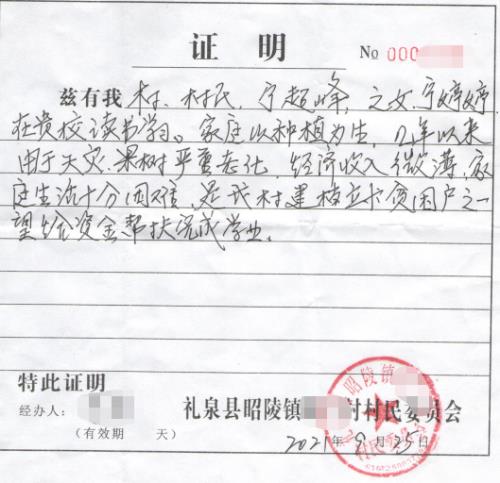 证 明
No 000
兹有我 村、村民,宁超峰,之女,宁婷婷
在贵校读书学习。家庭以种植为生,几年以来
由于天灾,果树严重老化,经济收入微薄,家
庭生活十分困难,是我村建档立卡贫困户之一
望给资金帮扶完成学业。
特此证明
经办人:
礼泉县昭陵镇 村村民委员会
(有效期 天)
2021年9月25日
昭陵镇
村民委员会